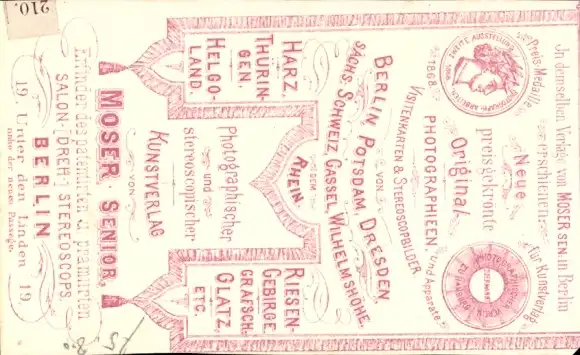 In demselben Verlage von MOSER SEN. in Berlin
erschienen:
Preis-Medaille
für Kunstverlag
1868.
Neue
preisgekrönte
Original
PHOTOGRAPHIEEN,
und Apparate
VISITENKARTEN & STEREOSCOPBILDER
VON
BERLIN POTSDAM, DRESDEN
SÄCHS. SCHWEIZ, CASSEL, WILHELMSHÖHE,
DEM
RHEIN
HARZ,
THÜRIN-
GEN,
HELGO-
LAND.
RIESEN-
GEBIRGE,
GRAFSCH.
GLATZ,
ETC.
Photographischer
und
stereoscopischer
KUNSTVERLAG
VON
MOSER SENIOR,
Erfinder des patentirten u. praemiirten
SALON-(DREH-) STEREOSCOPS
BERLIN
19. Unter den Linden 19.
nahe der neuen Passage.
210.